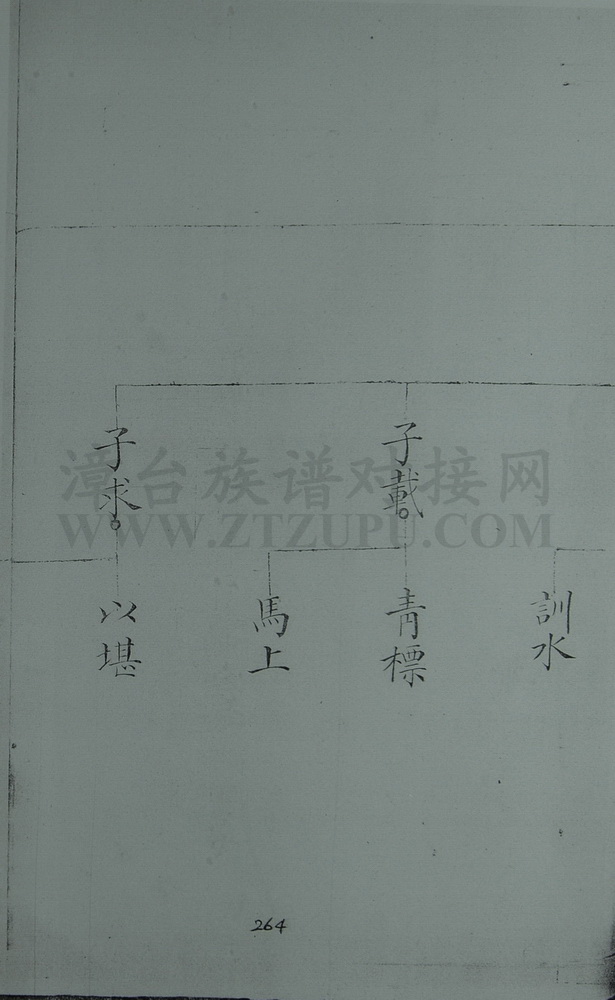 子載。
子求。
訓水
青標
馬上
以堪
漳台族谱对接网
WWW.ZTZUPU.COM
264